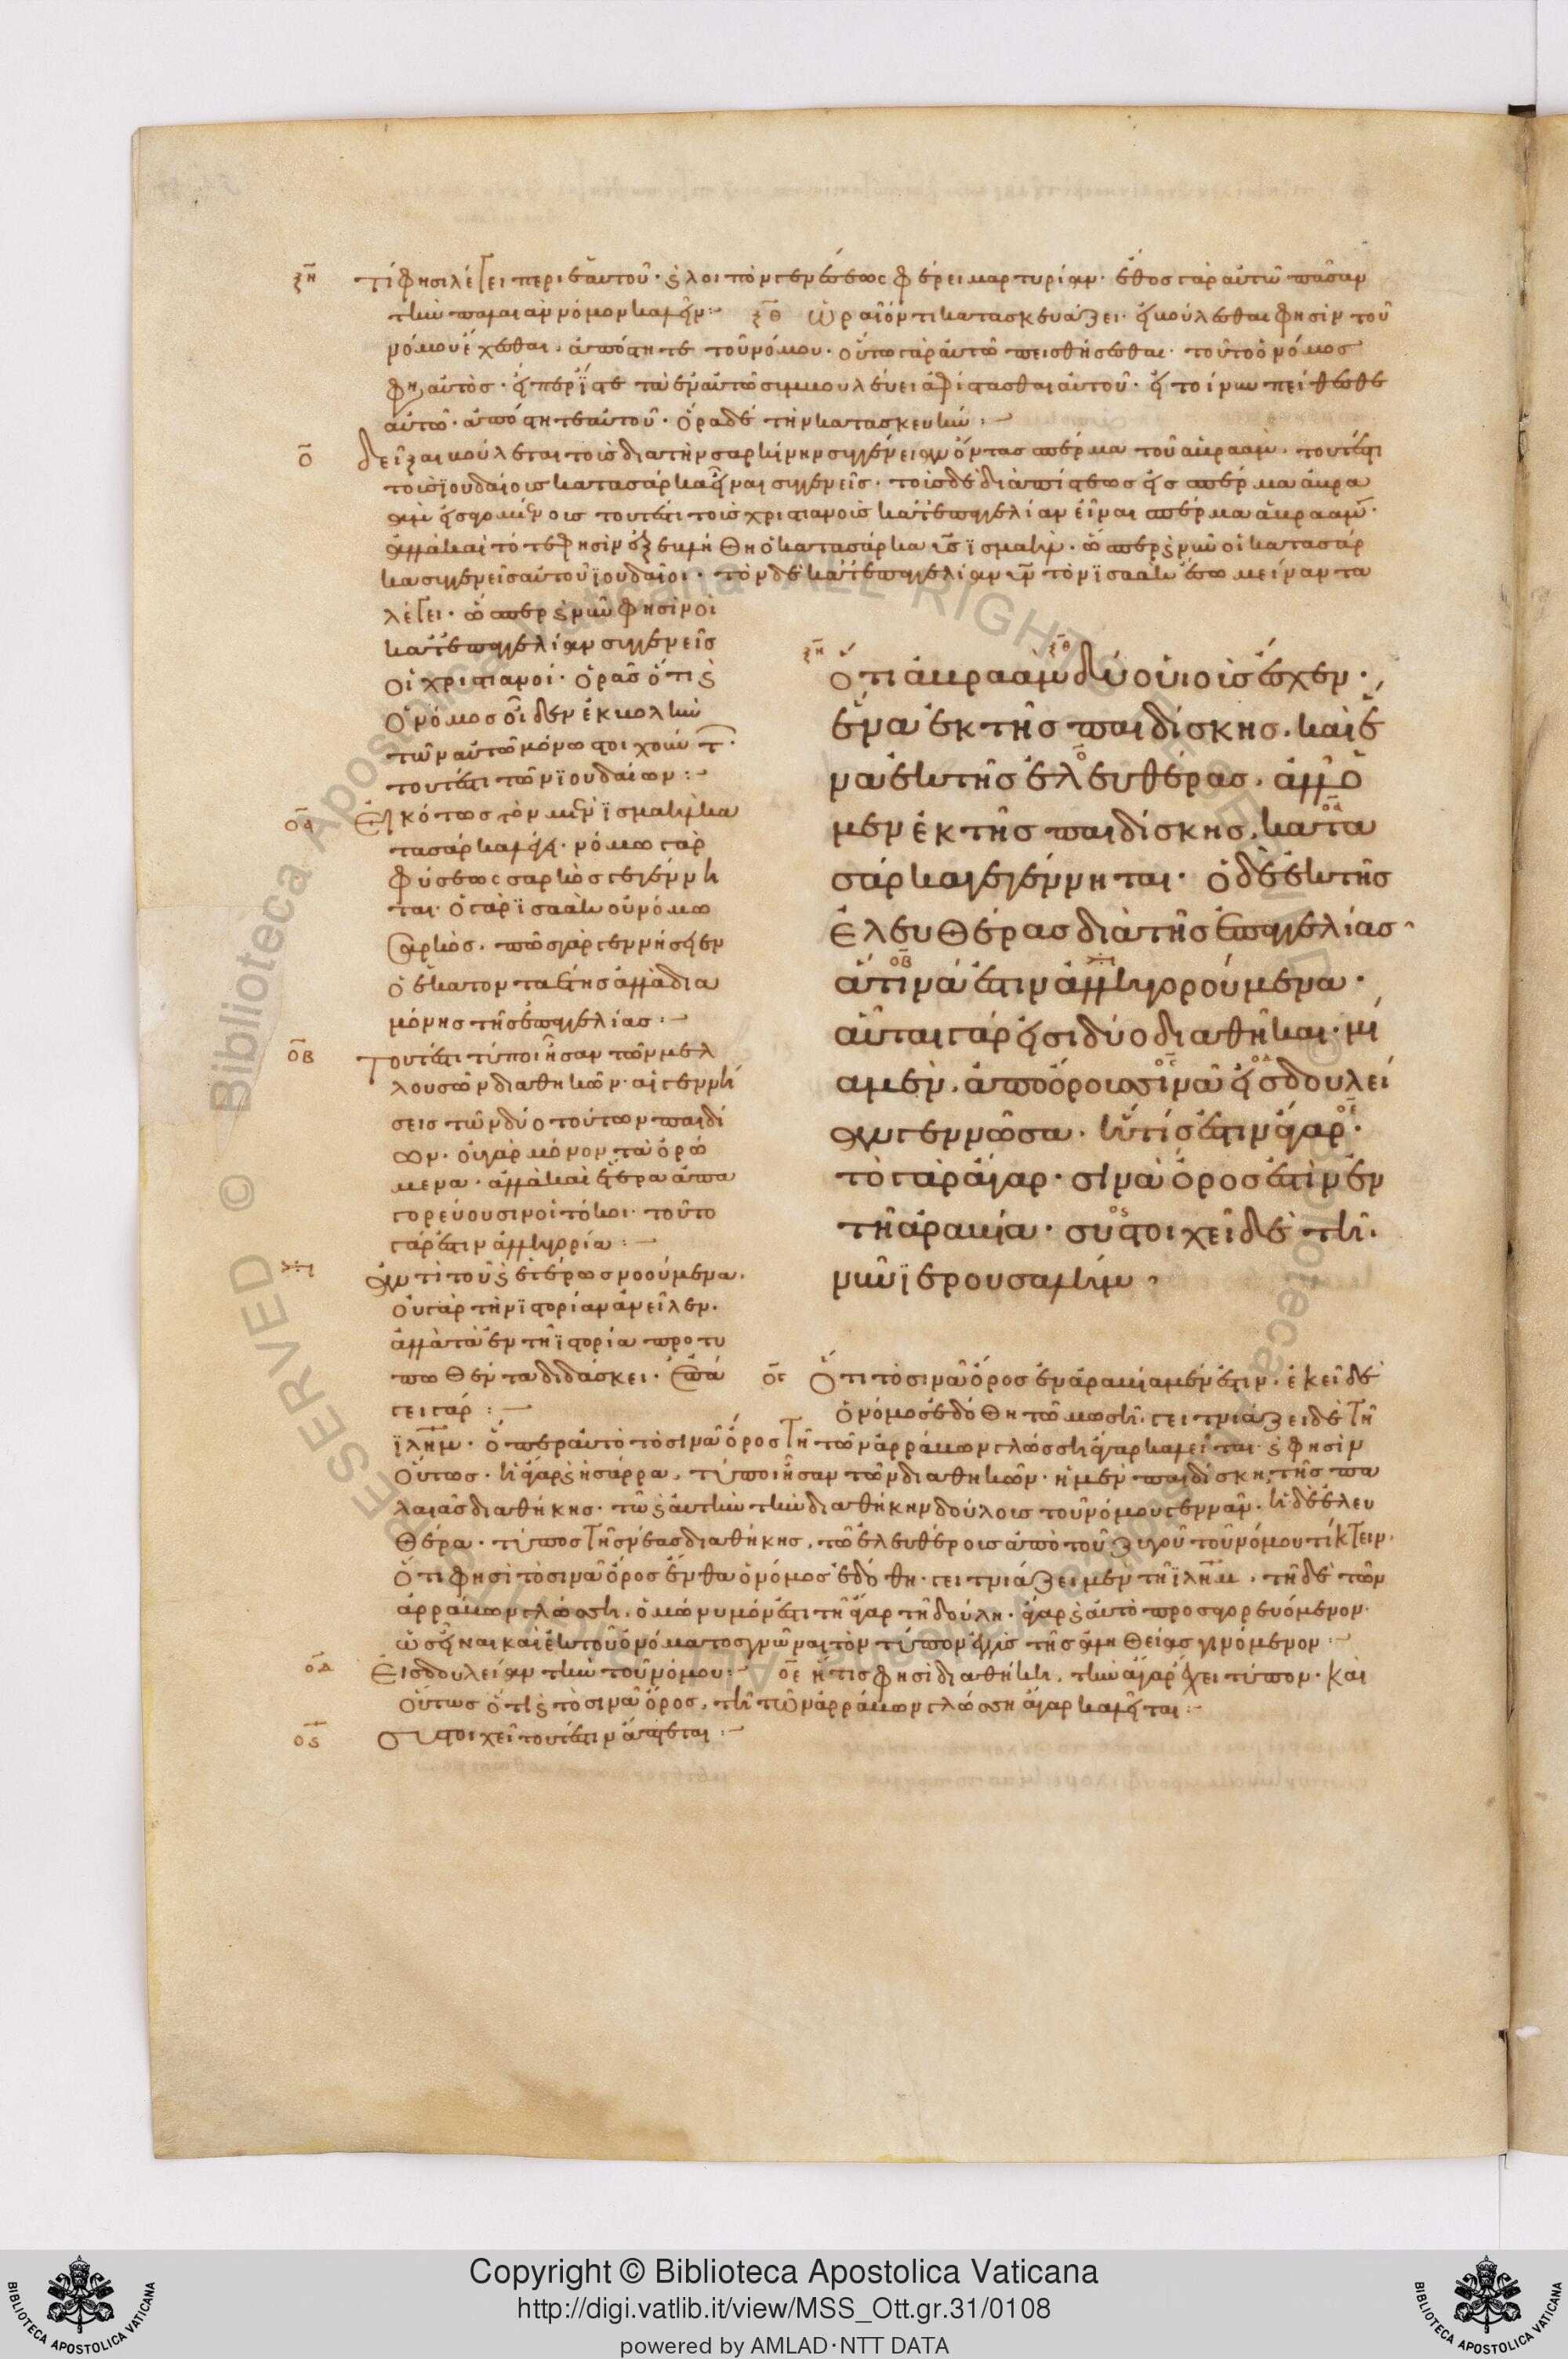 ξη τί φησι λέγει περι ἑαυτοῦ· ϗ λοιπὸν γενέσεως φέρει μαρτυρίαν· ἔθος γὰρ αὐτῶ πᾶσαν
τὴν παλαιὰν νόμον καλεῖν: ξθ ὡραῖόν τι κατασκευάζει· εἰ βούλεσθαι φησὶν τοῦ
νόμου ἔχεσθαι, ἀπόστητε τοῦ νόμου· οὕτω γὰρ αὐτῶ πεισθήσεσθαι· τοῦτο ὁ νόμος
αὐτὸς· συμβουλεύει ἀφίστασθαι αὐτοῦ· εἰ τοίνυν πείθεσθε
αὐτῶ· ἀπόστητε αὐτοῦ· ὅρα δὲ τὴν κατασκευὴν:
ο δεῖξαι βούλεται τοῖς διὰ τὴν σαρκίνην συγγένειαν ὄντας σπέρμα τοῦ ἀβραάμ, τουτέστι
τοῖς ἰουδαίοις κατὰ σάρκα εἶναι συγγενεῖς· τοῖς δὲ διὰ πίστεως εἰς σπέρμα ἀβρα
ὰμ εἰσποιουμένοις τουτέστι τοῖς χριστιανοῖς κατ' ἐπαγγελίαν εἶναι σπέρμα ἀβραάμ·
κατὰ σάρκα ἰσμαήλ· ὥσπερ ϗ νῦν οἱ κατὰ σάρ
κα συγγενεῖς αὐτοῦ ἰουδαῖοι· τὸν δὲ κατ' ἐπαγγελίαν τὸν ἰσαὰκ
λέγει· ὥσπερ ϗ νῦν φησὶν οἱ
κατ' ἐπαγγελίαν συγγενεῖς
οἱ χριστιανοί· ὁρᾶς ὅτι ϗ
ὁ νόμος οἶδεν ἐκβολὴν
τῶν αὐτῶ μόνω στοιχούντ·
τουτέστι τῶν ἰουδαίων:
οα Εἰκότως τὸν μὲν ἰσμαὴλ κα
τὰ σάρκα νόμω γὰρ
φύσεως σαρκὸς γεγέννη
ται· ὁ γὰρ ἰσαὰκ οὐ νόμω
σαρκὸς· πῶς γὰρ γεννήσειεν
ὁ ἑκατονταέτης ἀλλὰ δια
μόνης τῆς ἐπαγγελίας:
οβ Τουτέστι τύποι ἦσαν τῶν μελ
λουσῶν διαθηκῶν· αἱ γεννή
σεις τῶν δύο τούτων παιδί
ων· οὐ γὰρ μόνον τὰ ὁρώ
μενα· ἀλλὰ καὶ ἕτερα ἀπα
γορεύουσιν οἱ τόκοι· τοῦτο
γάρ ἐστιν ἀλληγορία:
ἀντὶ τοῦ ϗ ἑτέρως νοούμενα,
οὐ γὰρ τὴν ἱστορίαν ἀνεῖλεν.
ἀλλὰ τὰ ἐν τῆ ἱστορία προτυ
πωθέντα διδάσκει· ἐπά
γει γάρ:
ξη Ὅτι ἀβραὰμ ξθ δύο υἱοὺς ἔσχεν·
ἕνα ἐκ τῆς παιδίσκης, καὶ ἕ
να ἐκ τῆς ἐλευθέρας, ἀλλ' ὁ
μὲν ἐκ τῆς παιδίσκης, κατα
σάρκα γεγέννηται· ὁ δὲ ἐκ τῆς
ἐλευθέρας διὰ τῆς ἐπαγγελίας·
ἅτινά ἐστιν ἀλληγορρούμενα·
αὗται γάρ εἰσι δύο διαθῆκαι· μί
α μὲν, ἀπὸ ὄρους σινᾶ εἰς δουλεί
αν γεννῶσα· ἥτις ἐστιν ἄγαρ·
τὸ γὰρ ἄγαρ· σινὰ ὄρος ἐστὶν ἐν
τῆ ἀραβία· συστοιχεῖ δὲ τῆ
νῦν ἱερουσαλήμ·
ογ Ὅτι τὸ σινᾶ ὄρος ἐν ἀραβία μέν ἐστιν, ἐκεῖ δὲ
ὁ νόμος ἐδόθη τῶ μωσῆ· γειτνιάζει δὲ τῆ
ἰλημ· ὅπερ αὐτὸ τὸ σινᾶ ὄρος τῆ τῶν ἀρράβων γλώσση ἄγαρ καλεῖται· ϗ φησὶν
οὕτως· ἡ ἄγαρ ϗ ἡ σάρρα, τύποι ἦσαν τῶν διαθηκῶν· ἡ μὲν παιδίσκη, τῆς πα
λαιᾶς διαθήκης· τῶ ϗ αὐτὴν τὴν διαθήκην δούλοις τοῦ νόμου γεννᾶν· ἡ δὲ ἐλευ
θέρα· τύπος τῆς νέας διαθήκης, τῶ ἐλευθέροις ἀπὸ τοῦ ζυγοῦ τοῦ νόμου τίκτειν.
ὅτι φησὶ τὸ σινᾶ ὄρος ἔνθα ὁ νόμος ἐδόθη· γειτνιάζει μὲν τῆ ἰλημ, τῆ δὲ τῶν
ἀρράβων γλώσση, ὁμώνυμόν ἐστι τῆ ἄγαρ τῆ δούλη· ἄγαρ ϗ αὐτὸ προσαγορευόμενον·
ὡς εἶναι καὶ ἐκ τοῦ ὀνόματος γνῶναι τὸν τύπον ἐγγὺς τῆς ἀληθείας γινόμενον:
οδ Εἰς δουλείαν τὴν τοῦ νόμου: οε ἥτις φησὶ διαθήκη, τὴν ἄγαρ ἔχει τύπον· καὶ
οὕτως ὅτι ϗ τὸ σινᾶ ὄρος, τῆ τῶν ἀρράβων γλώσση ἄγαρ καλεῖται:
ος Συστοιχεῖ τουτέστιν ἅπτεται:
Copyright © Biblioteca Apostolica Vaticana
http://digi.vatlib.it/view/MSS_Ott.gr.31/0108
powered by AMLAD·NTT DATA